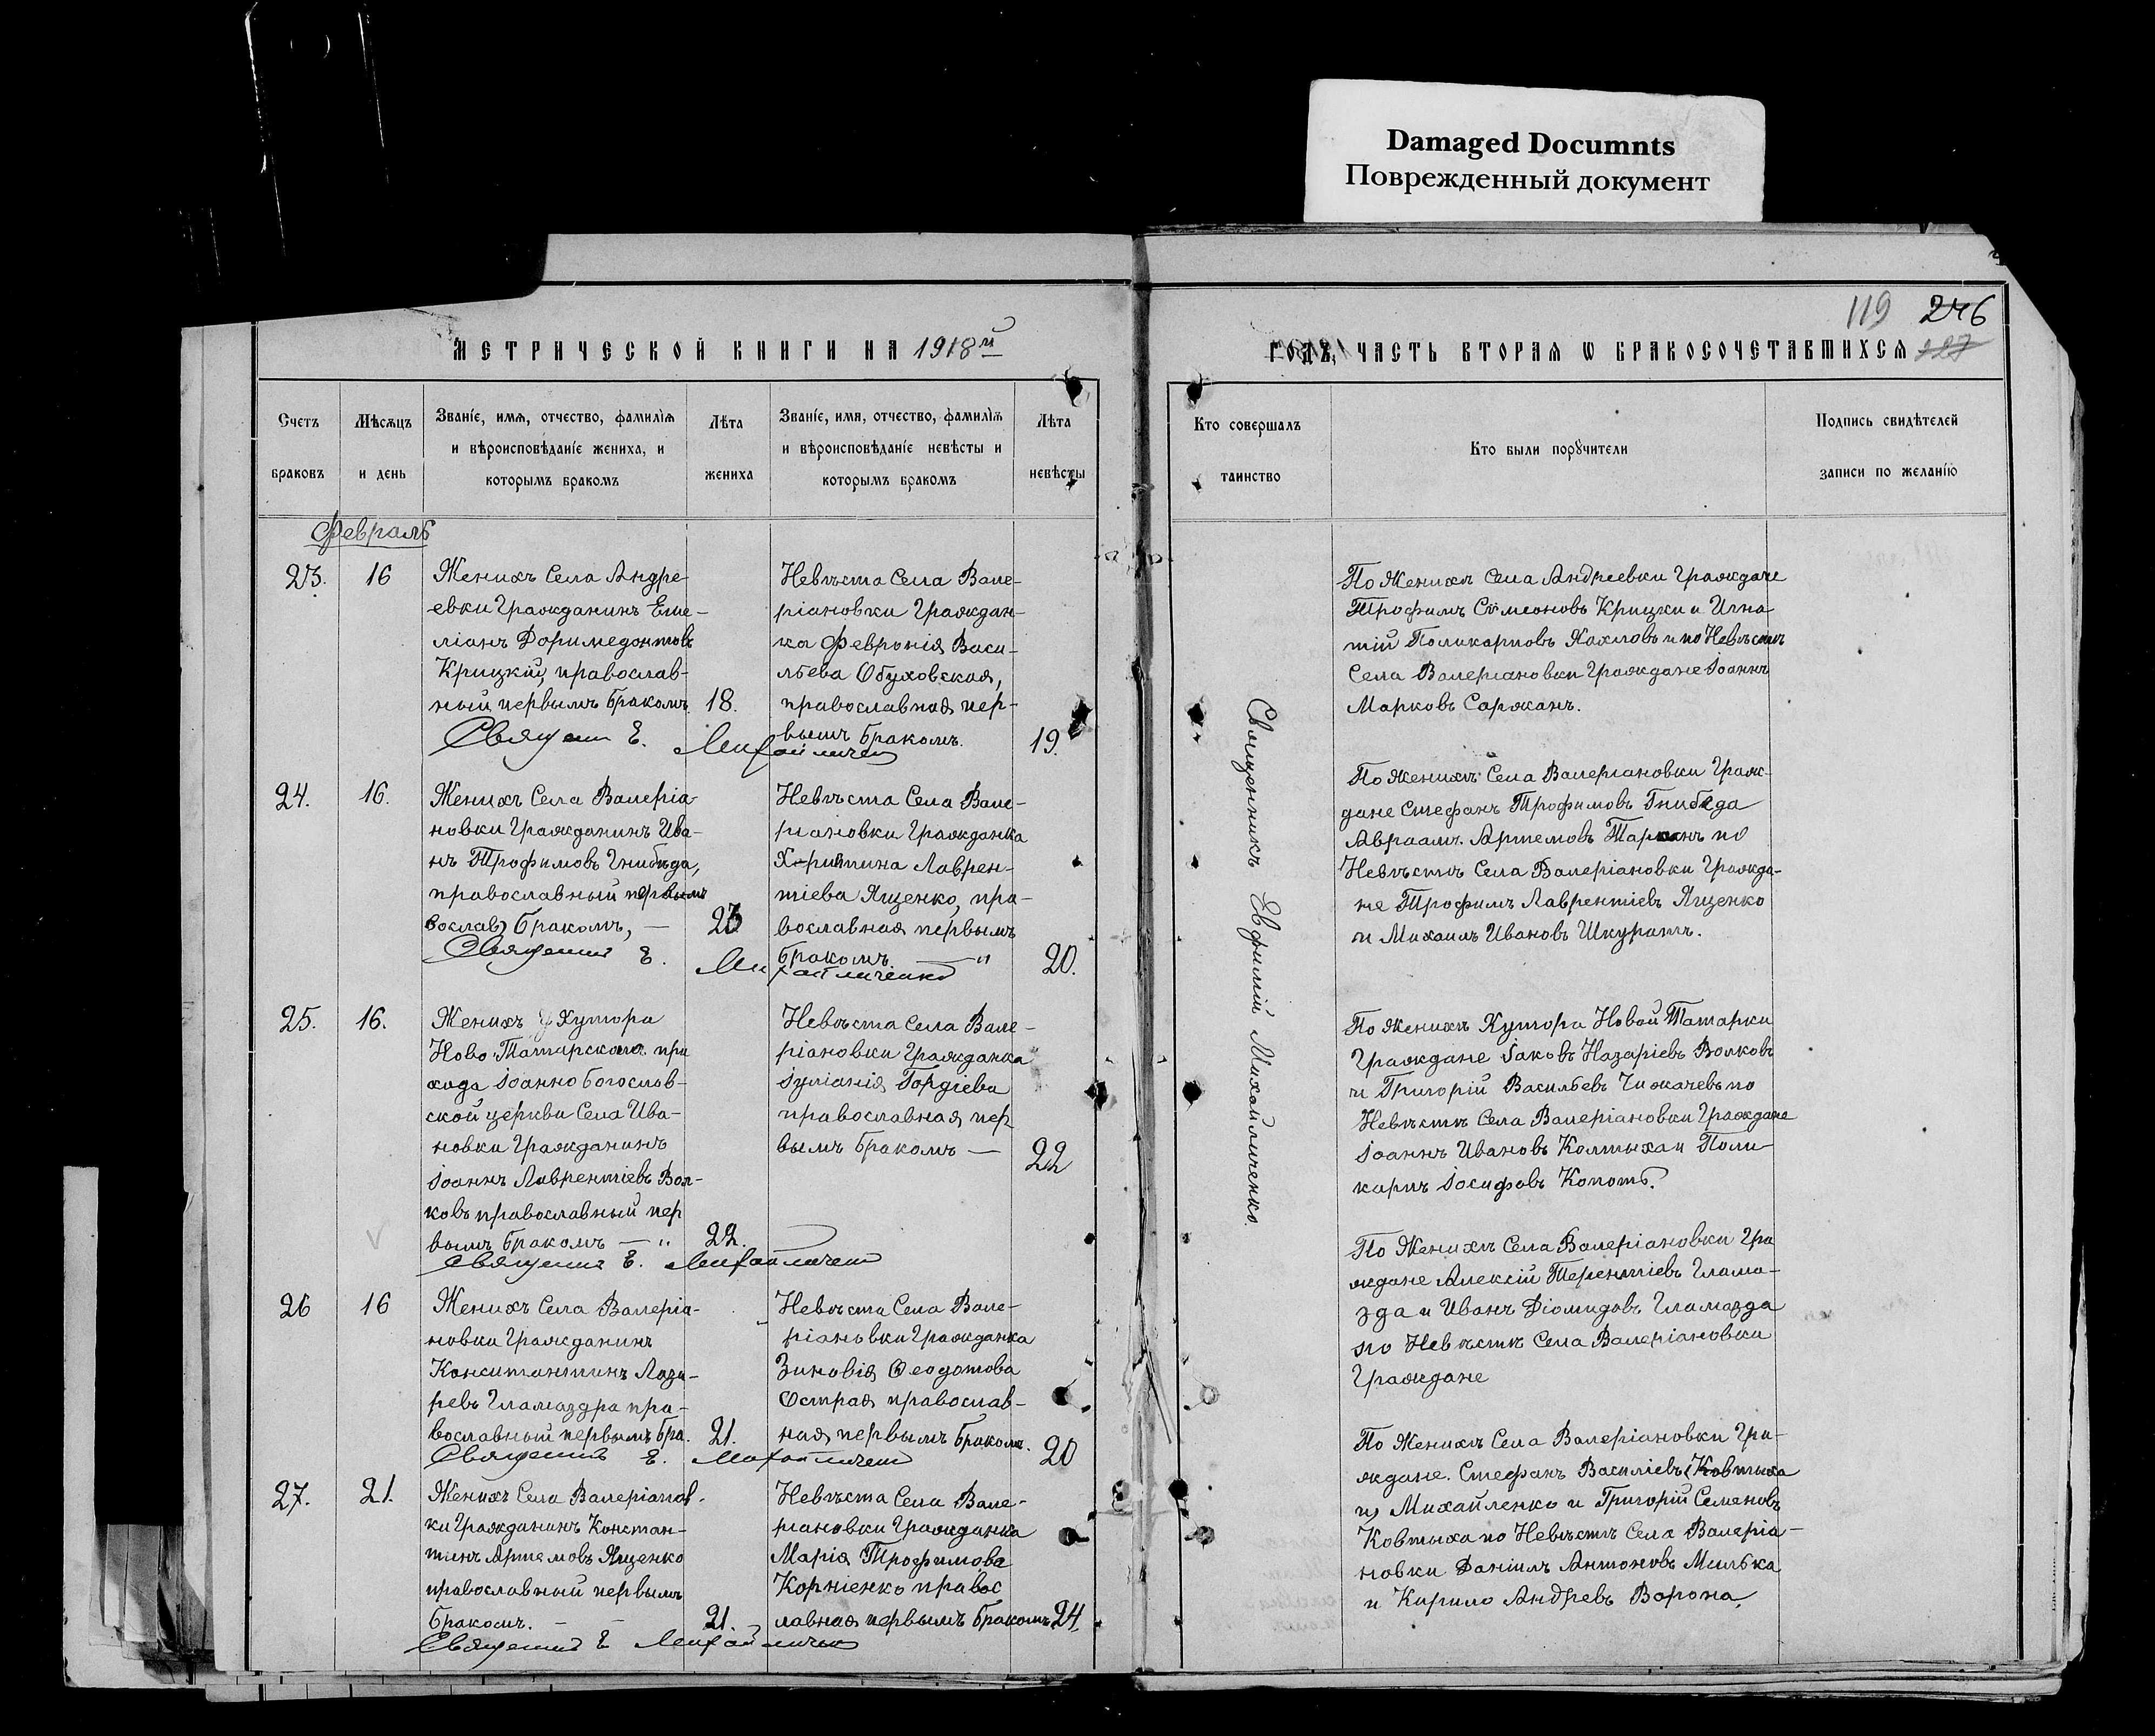 Damaged Documnts
Поврежденный документ
119 246
МЕТРИЧЕСКОЙ КНИГИ НА 1918й
ГОДЪ, ЧАСТЬ ВТОРАЯ Ѡ БРАКОСОЧЕТАВШИХСЯ 227
Счетъ
браковъ
Мѣсяцъ
и день
Званіе, имя, отчество, фамилія
и вѣроисповѣданіе жениха, и
которымъ бракомъ
Лѣта
жениха
Званіе, имя, отчество, фамилія
и вѣроисповѣданіе невѣсты и
которымъ бракомъ
Лѣта
невѣсты
Кто совершалъ
таинство
Кто были порꙋчители
Подпись свидѣтелей
записи по желанію
Февраль
23. 16
Женихъ Села Андре-
евки Гражданинъ Еме-
ліанъ Доримедонтовъ
Крицкій, православ-
ный первымъ бракомъ. 18.
Невѣста Села Вале-
ріановки Граждан-
ка Февронія Васи-
льева Обуховская,
православная пер-
вымъ бракомъ. 19.
Священ Е. Михайличен
По Женихѣ Села Андреевки Граждане
Трофимъ Сѵмеоновъ Крицки и Игна
тій Поликарповъ Хохловъ и по Невѣстѣ
Села Валеріановки Граждане Іоаннъ
Марковъ Саржанъ.
24. 16.
Женихъ Села Валеріа
новки Гражданинъ Ива-
нъ Трофимовъ Гнибѣда,
православный первымъ
вослав) бракомъ, — 23
Невѣста Села Вале-
ріановки Гражданка
Харитина Лаврен-
тіева Ященко, пра-
вославная первымъ
бракомъ. — " 20.
Священник Е. Михайличенко
По Женихѣ Села Валеріановки Граж-
дане Стефанъ Трофимовъ Гнибѣда
Авраамъ Артемовъ Таранъ по
Невѣстѣ Села Валеріановки Гражда-
не Трофимъ Лаврентіевъ Ященко
и Михаилъ Ивановъ Шкуратъ.
25. 16.
Женихъ Хутора
Ново-Татарскаго при
хода Іоанно Богослов-
ской церкви Села Ива-
новки Гражданинъ
Іоаннъ Лаврентіевъ Вол-
ковъ православный пер
вымъ бракомъ — " 22.
Невѣста Села Вале-
ріановки Гражданка
Іуліанія Гордіева
православная пер
вымъ бракомъ — 22
Священник Е. Михайличен
По Женихѣ Хутора Новой Татарки
Граждане Іаковъ Назаріевъ Волковъ
и Григорій Васильевъ Чижачевъ по
Невѣстѣ Села Валеріановки Граждане
Іоаннъ Ивановъ Колтыхаи Поли-
карпъ Іосифовъ Копоть.
26 16
Женихъ Села Валеріа-
новки Гражданинъ
Константинъ Лаза-
ревъ Гламаздра пра-
вославный первымъ бра. 21.
Невѣста Села Вале-
ріановки Гражданка
Зиновія Ѳеодотова
Острая православ-
ная первымъ бракомъ. 20
Священник Е. Михайличен
По Женихѣ Села Валеріановки Гра
ждане Алексій Терентіевъ Глама-
зда и Иванъ Діомидовъ Гламазда
по Невѣстѣ Села Валеріановки
Граждане
27. 21.
Женихъ Села Валеріанов-
ки Гражданинъ Констан-
тинъ Артемовъ Ященко
православный первымъ
бракомъ. — — 21.
Невѣста Села Вале-
ріановки Гражданка
Марія Трофимова
Корніенко правос
лавная первымъ бракомъ. 24.
Священник Е Михайличен
По Женихѣ Села Валеріановки Гра-
ждане. Стефанъ Василіевъ (Ковтыха
и) Михайленко и Григорій Семеновъ
Ковтыха по Невѣстѣ Села Валеріа-
новки Даніилъ Антоновъ Милька
и Кирило Андревъ Ворона.
Священникъ Евфимій Михайличенко.